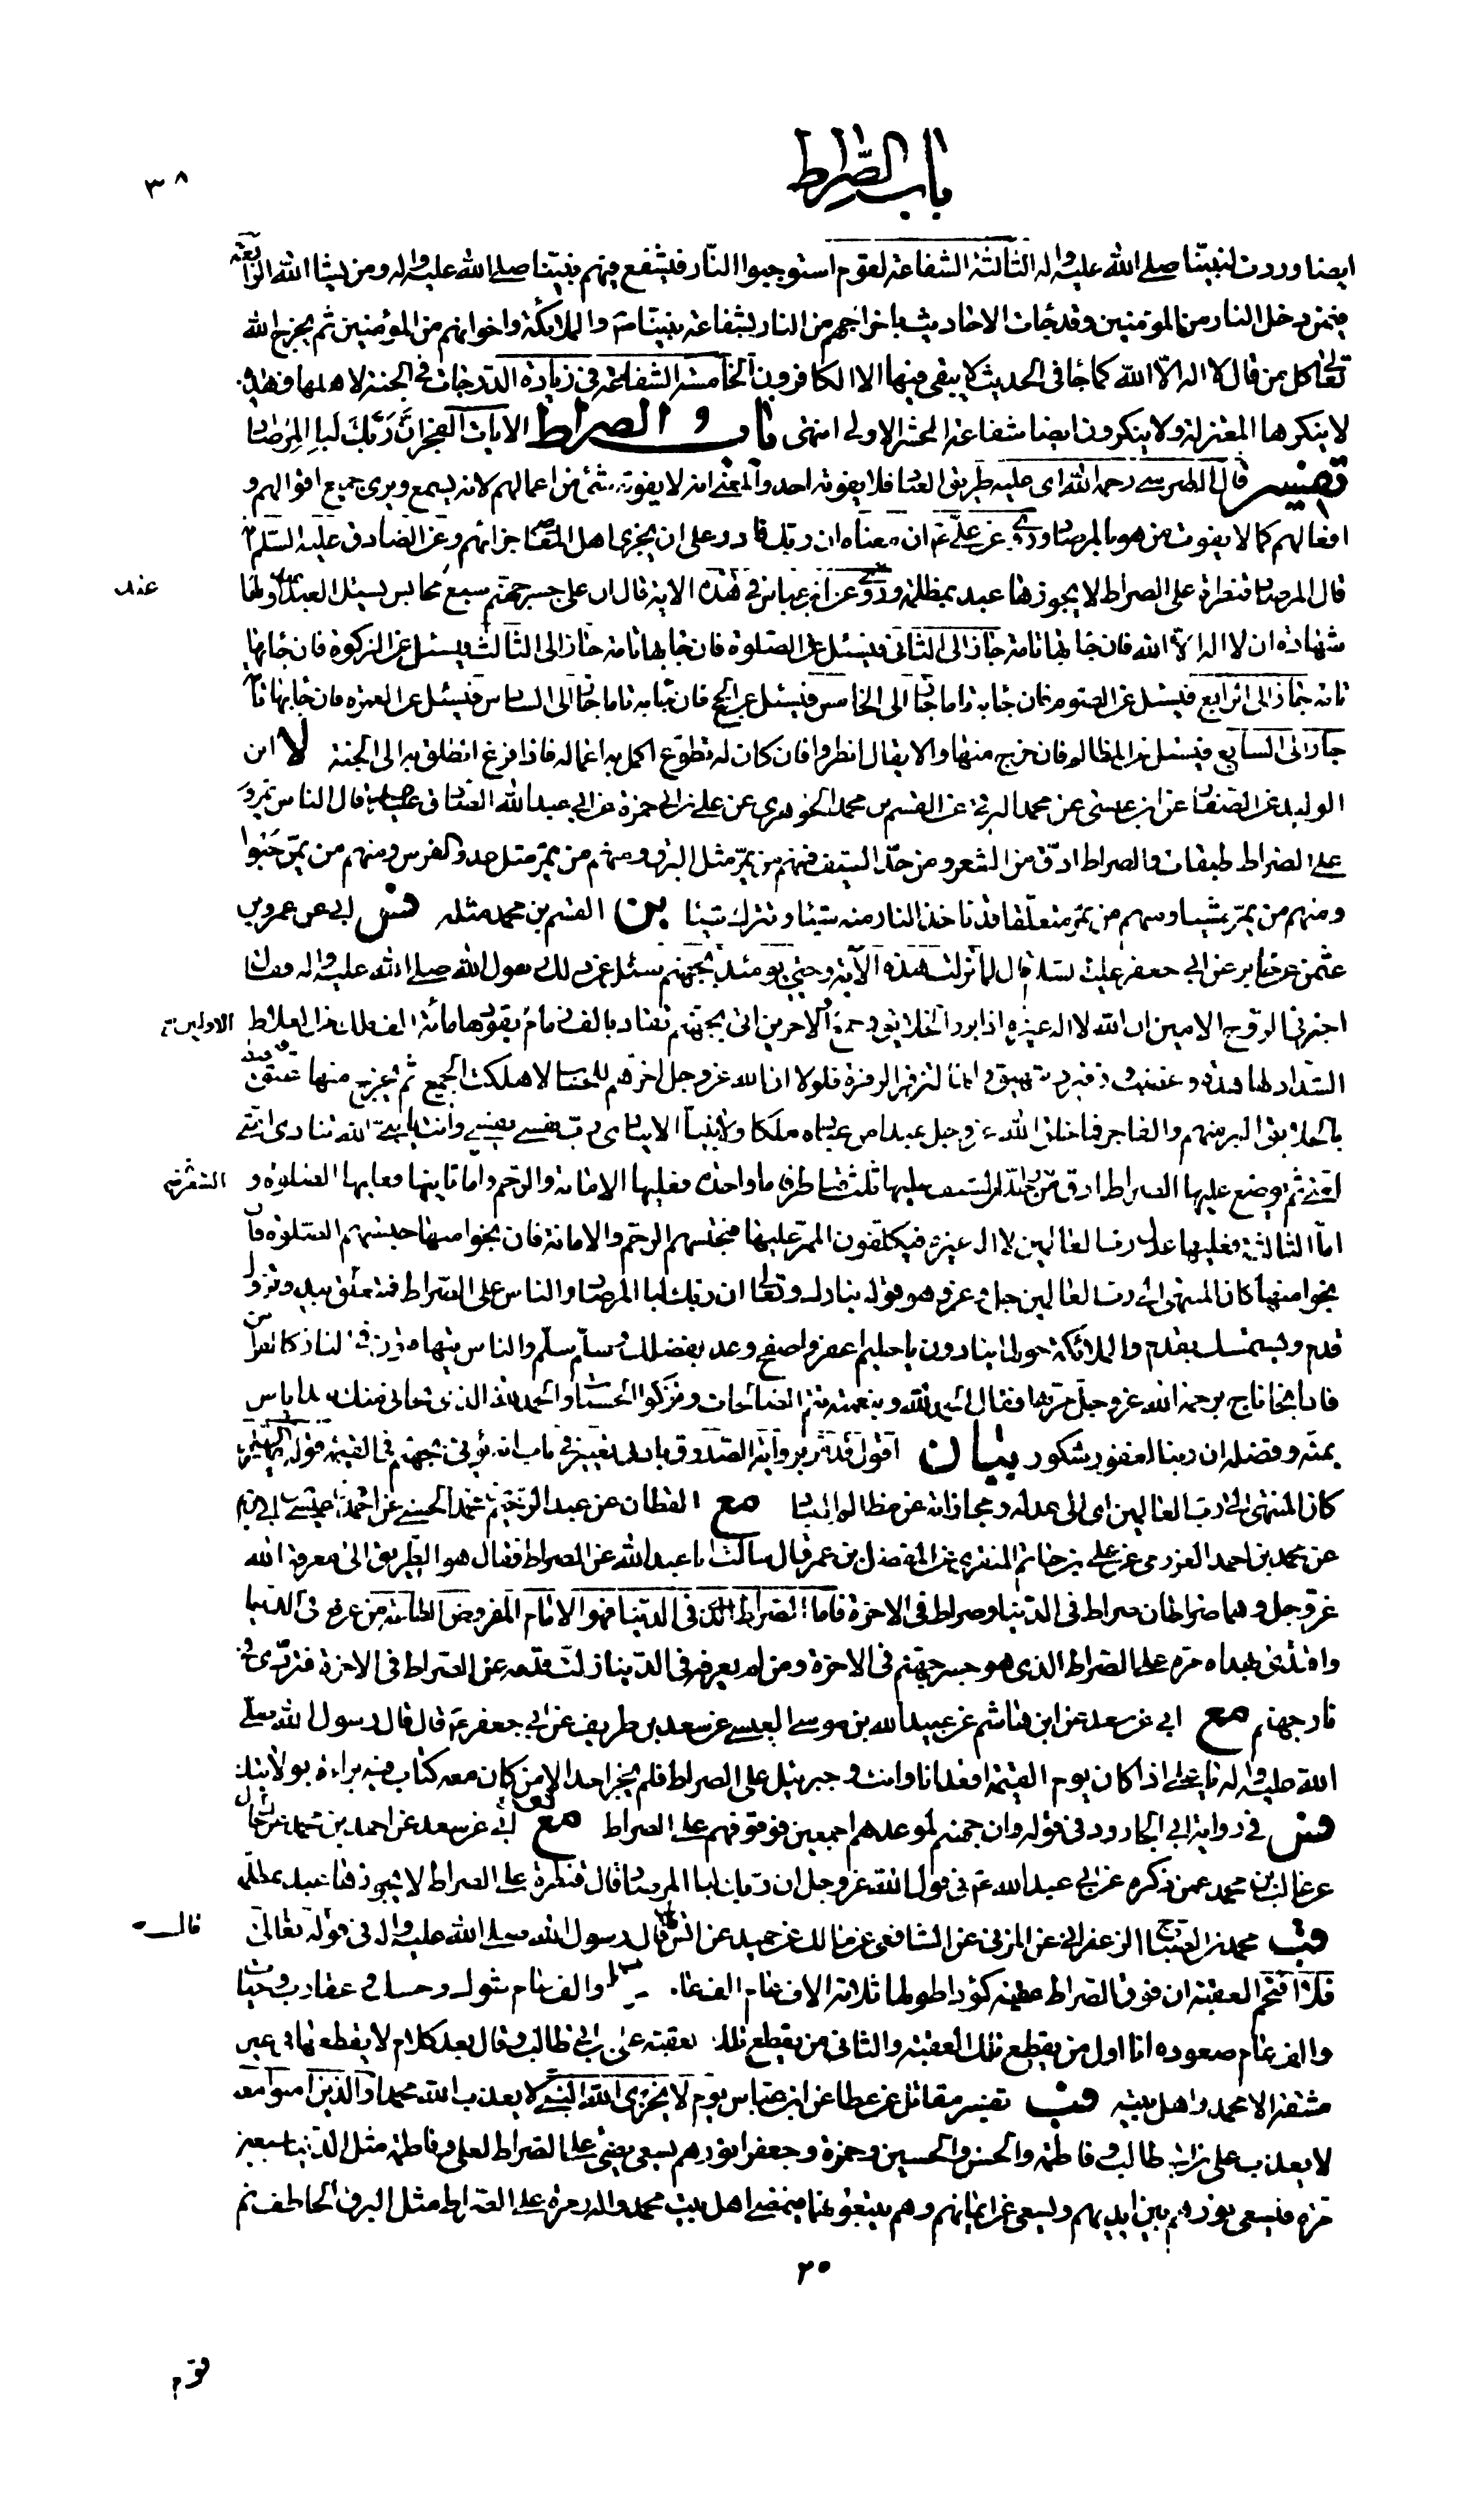 باب الصراط
٣٨
ايضا وردت لنبيّنا صلى الله عليه واله الثالثة الشفاعة لقوم استوجبوا النّار فيشفع فيهم نبيّنا صلى الله عليه واله ومن يشاء الله الرّابعة
فيمن دخل النار من المؤمنين وقد جاءت الاحاديث باخراجهم من النار بشفاعة نبيّنا ص والملائكة واخوانهم من المؤمنين ثم يخرج الله
تعالى كل من قال لا اله الّا الله كما جاء فى الحديث لا يبقى فيها الا الكافرون الخامسة الشفاعة فى زيادة الدّرجات فى الجنة لاهلها وهذه
لا ينكرها المعتزلة ولا ينكرون ايضا شفاعة الحشر الاولى انتهى باب الصراط الايات الفجر انّ ربّك لبالمرصاد
تفسير قال الطبرسى رحمه الله اى عليه طريق العباد فلا يفوته احد والمعنى انه لا يفوته شئ من اعمالهم لانه يسمع ويرى جميع اقوالهم و
افعالهم كما لا يفوت من هو بالمرصاد وروى عن علىّ ع ان معناه ان ربّك قادر على ان يجزى اهل المعاصى جزائهم وعن الصّادق عليه السّلم انه
قال المرصاد قنطرة على الصراط لا يجوزها عبد بمظلمة وروى عن ابن عباس فى هذه الاية قال ان على جسر جهنّم سبع محابس يسئل العبد عند اولها عن
عند
شهادة ان لا اله الّا الله فان جاء بها تامة جاز الى الثانى فيسئل عن الصّلوة فان جاء بها تامة جاز الى الثالث فيسئل عن الزكوة فان جاء بها
تامة جاز الى الرابع فيسئل عن الصّوم فان جاء به تاما جاز الى الخامس فيسئل عن الحج فان جاء به تاما جاز الى السادس فيسئل عن العمرة فان جاء بها تامة
جاز الى السابع فيسئل عن المظالم فان خرج منها والا يقال انظروا فان كان له تطوّع اكمل به اعماله فاذا فرغ انطلق به الى الجنة لى ابن
الوليد عن الصفار عن ابن عيسى عن محمد البرقى عن القسم بن محمد الجوهرى عن على بن ابى حمزة عن ابى عبدالله الصّادق عليه السلام قال الناس يمرّون
على الصراط طبقات والصراط ادقّ من الشعر ومن حدّ السيف فمنهم من يمرّ مثل البرق ومنهم من يمرّ مثل عدو الفرس ومنهم من يمرّ حبوا
ومنهم من يمرّ مشيا ومنهم من يمرّ متعلّقا قد تاخذ النار منه شيئا وتترك شيئا ين القسم بن محمد مثله فس ابى عن عمرو بن
عثمن عن جابر عن ابى جعفر عليه السلم قال لما نزلت هذه الآية وجئ يومئذ بجهنّم سئل عن ذلك رسول الله صلى الله عليه واله فقال
اخبرنى الروح الامين ان الله لا اله غيره اذا برز الخلايق وجمع الاخرين اتى بجهنّم تقاد بالف زمام يقودها مائة الف ملك من الغلاظ
الاولين و
الشّداد لها هدّة وغضب وزفير وشهيق وانها لتزفر الزفرة فلولا ان الله عزوجل اخرّهم للحساب لاهلكت الجميع ثم يخرج منها عنق فيحيط
بالخلايق البر منهم والفاجر فما خلق الله عزوجل عبدا من عباده ملكا ولا نبيّا الا ينادى ربّ نفسى نفسى وانت يا نبىّ الله تنادى امّتى
امّتى ثم يوضع عليها الصراط ادق من حدّ السيف عليها ثلث قناطر فاما واحدة فعليها الامانة والرّحم واما ثانيها فعليها الصّلوة و
امّا الثالثة فعليها عدل ربّ العالمين لا اله غيره فيكلّفون الممرّ عليها فيحبسهم الرحم والامانة فان نجوا منها حبستهم الصّلوة فان
نجوا منها كان المنتهى الى ربّ العالمين جل وعز وهو قوله تبارك وتعالى ان ربّك لبالمرصاد والناس على الصّراط فمتعلّق بيد وتزول
قدم ويستمسك بقدم والملائكة حولها ينادون يا حليم اعف واصفح وعد بفضلك وسلّم سلّم والناس يتهافتون فى النار كالفراش
فاذا نجا ناج برحمة الله عزوجلّ مرّ بها فقال الحمد لله وبنعمته تتمّ الصّالحات وتزكوا الحسنات والحمد لله الذى نجانى منك بعد اياس
بمنّه وفضله ان ربنا لغفور شكور بيان اقول قد مرّ برواية الصّدوق بادنى تغيير فى باب انه يؤتى بجهنّم فى القيمة قوله
كان المنتهى الى ربّ العالمين اى الى عدله ومجازاته عن مظالم العباد مع القطان عن عبد الرّحمن بن محمد الحسنى عن احمد بن عيسى
عن محمد بن احمد العزرمى عن على بن حاتم المنقرى عن المفضل بن عمر قال سالت ابا عبدالله عن الصراط فقال هو الطّريق الى معرفة الله
عزّوجل وهما صراطان صراط فى الدّنيا وصراط فى الاخرة فاما الصّراط الذى فى الدّنيا فهو الامام المفروض الطاعة من عرفه فى الدّنيا
واقتدى بهداه مرّ على الصّراط الذى هو جسر جهنّم فى الاخرة ومن لم يعرفه فى الدّنيا زلّت قدمه عن الصّراط فى الاخرة فتردّى فى
نار جهنم مع ابى عن سعد عن ابن هاشم عن عبيد الله بن موسى العبسى عن سعد بن طريف عن ابى جعفر ع قال قال رسول الله صلى
الله عليه واله يا على اذا كان يوم القيمة اقعد انا وانت وجبرئيل على الصراط فلم يجز احد الا من كان معه كتاب فيه براءة بولايتك
فس فى رواية ابى الجارود فى قوله وان جهنم لموعدهم اجمعين فوقوفهم على الصراط مع ابى عن سعد عن احمد بن محمد
عن غالب بن محمد عمن ذكره عن ابى عبدالله ع فى قول الله عزوجل ان ربك لبالمرصاد قال قنطرة على الصراط لا يجوزها عبد بمظلمة
قب محمد بن الصباح الزعفرانى عن المزنى عن الشافعى عن مالك عن حميد عن انس قال رسول الله صلى الله عليه واله فى قوله تعالى
قال
فلا اقتحم العقبة ان فوق الصّراط عقبة كؤدا طولها ثلاثة الاف عام الف عام والف عام شوك وحسك وعقارب وحيات
والف عام صعود انا اول من يقطع تلك العقبة والثانى من يقطع تلك العقبة على بن ابى طالب وقال بعد كلام لا يقطعها فى غير
مشقة الا محمد واهل بيته قب تفسير مقاتل عن عطا عن ابن عباس يوم لا يخزى الله النبى لا يعذب الله محمدا والذين امنوا معه
لا يعذب على بن ابى طالب وفاطمة والحسن والحسين وحمزة وجعفرا نورهم يسعى يضئ على الصّراط لعلى وفاطمة مثل الدّنيا سبعين
مرّة فيسعى نورهم بين ايديهم ويسعى عن ايمانهم وهم يتبعونها فيمضى اهل بيت محمد واله زمرة على الصّراط مثل البرق الخاطف ثم
٢٠
قوم